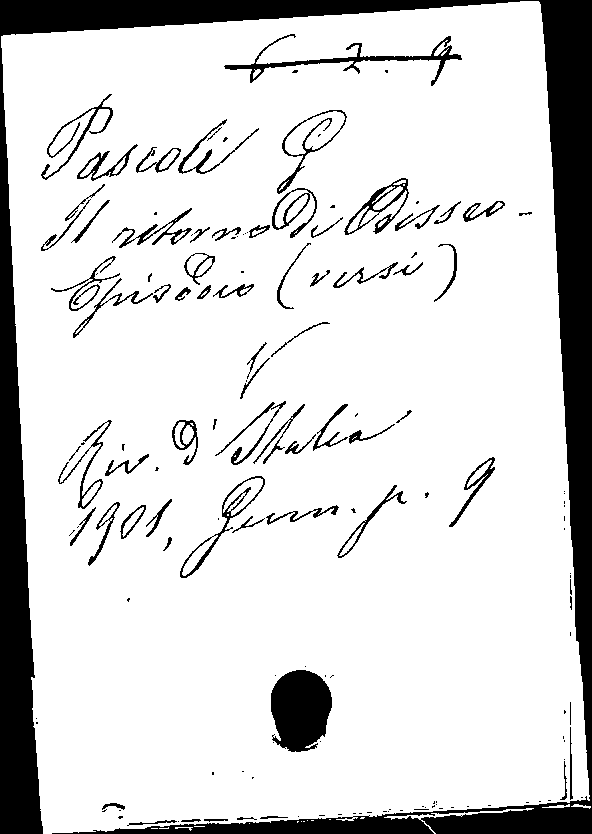 6. 2. 9
Pascoli G
Il ritorno di Odisseo -
Episodio (versi)
V
Riv. d'Italia
1901, Genn. p. 9